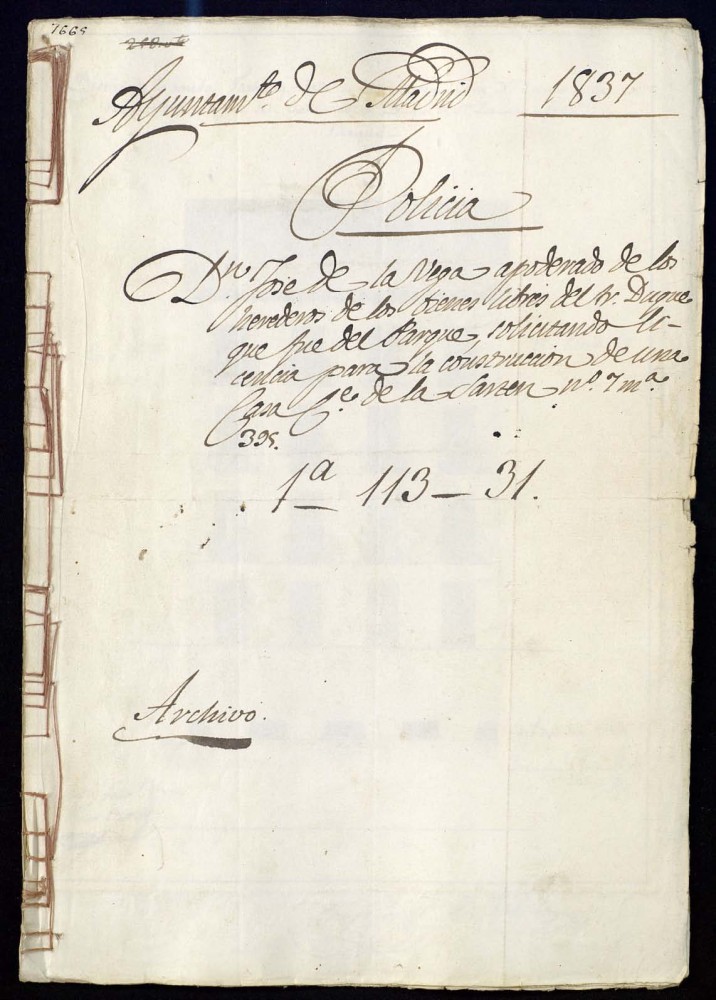 7668
Ayuntam.to de Madrid 1837
Policia
D.n Jose de la Vega apoderado de los
herederos de los bienes libres del Sr. Duque
que fue del Parque, solicitando li-
cencia para la construccion de una
Casa C.e de la Sarten nº. 7 m.a
395.
1a 113 - 31.
Archivo.